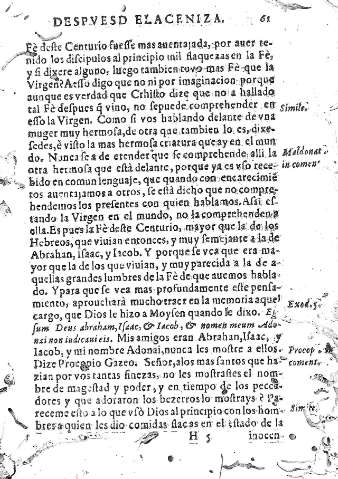 DESPVESD ELACENIZA. 61
Fè deste Centurio fuesse mas auentajada, por auer te-
nido los discipulos al principio mil flaquezas en la Fè,
y si dixere alguno: luego tambien tuvo mas Fè que la
Virgen? A esso digo que no ni por imaginacion: porque
aunque es verdad que Crhisto dize que no a hallado
tal Fè despues q̃ vino, no sepuede comprehender en
esso la Virgen. Como si vos hablando delante de vna
Simile.
muger muy hermosa, de otra que tambien lo es, dixe-
sedes, è visto la mas hermosa criatura que ay en el mun-
do. Nunca se a de etender que se comprehende alli la
Maldonat
otra hermosa que està delante, porque ya es vso rece-
in comen
bido en comun lenguaje, que quando con encarecimiẽ
tos auentajamos a otros, se está dicho que no compre-
hendemos los presentes con quien hablamos. Assi es-
tando la Virgen en el mundo, no la comprehenden a
ella. Es pues la Fè deste Centurio, mayor que la de los
Hebreos, que viuian entonces, y muy semejante a la de
Abrahan, Isaac, y Iacob. Y porque se vea que era ma-
yor que la de los que viuian, y muy parecida a la de a-
quellas grandes lumbres de la Fè de que auemos habla-
do. Y para que se vea mas profundamente este pensa-
miento, aprouecharà mucho traer en la memoria aquel
cargo, que Dios le hizo a Moysen quando le dixo. Ego
Exod. 5.
sum Deus abraham, Isaac, & Iacob, & nomen meum Ado-
nai non indicaui eis. Mis amigos eran Abrahan, Isaac, y
Iacob, y mi nombre Adonai, nunca les mostre a ellos.
Procop
Dize Procopio Gazeo. Señor, a los mas santos que ha-
coment.
zian por vos tantas finezas, no les mostrastes el nom-
bre de magestad y poder, y en tiempo de los pecca-
dores y que adoraron los bezerros lo mostrays è Pa-
receme esto a lo que vsò Dios al principio con los hom-
Simile.
bres a quien les dio comidas flacas en el estado de la
H 5 inocen-